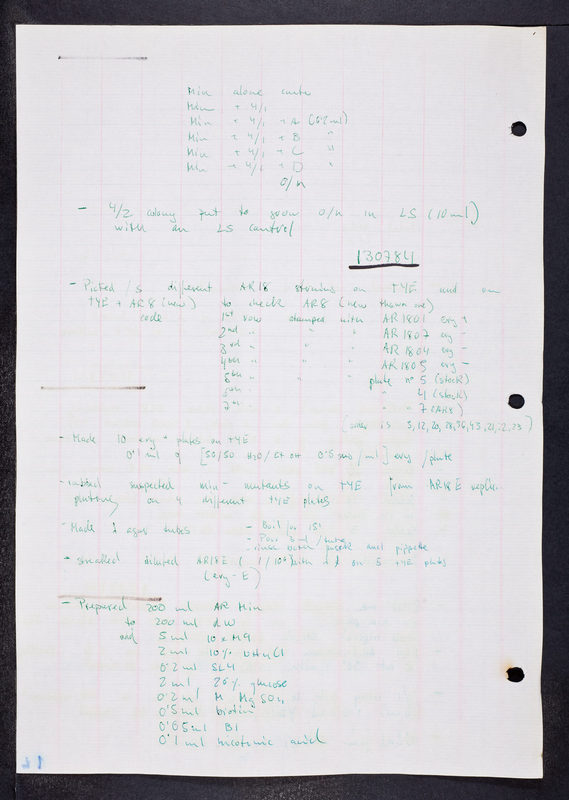 Min alone contr
Min + 4/1
Min + 4/1 + A (0.2ml)
Min + 4/1 + B "
Min + 4/1 + C "
Min + 4/1 + D "
o/n
- 4/2 colony put to grow o/n in LS (10ml)
with an LS control
130784
- Picked 15 different AR18 strains on TYE and on
TYE + AR8 (new) to check AR8 (new one)
code 1st row stamped with AR1801 ery +
2nd " " " AR1807 ery -
3rd " " " AR1804 ery -
4th " " " AR1805 ery -
5th " " " plate no 5 (stock)
6th " " 4 (stock)
7th " " 7 (AR8)
is 5,12,20,28,36,43,21,22,23)
- Made 10 ery+ plates on TYE
0.1 ml of [50/50 H2O/EtOH 0.5 mg/ml] ery /plate
- suspected min- mutants on TYE from AR18E replic.
plating on 4 different TYE plates
- Made 2 agar tubes - Boil for 15'
- Pour 3 ml /tube
- rinse both and pippete
- streaked diluted AR18E (1/10⁴) with on 5 TYE plates
(ery-E)
- Prepared 200 ml AR Min
to 200 ml dW
add 5 ml 10xM9
2 ml 10% NH4Cl
0.2 ml SL4
2 ml 20% glucose
0.2 ml M MgSO4
0.5 ml biotin
0.05 ml B1
0.1 ml nicotinic acid